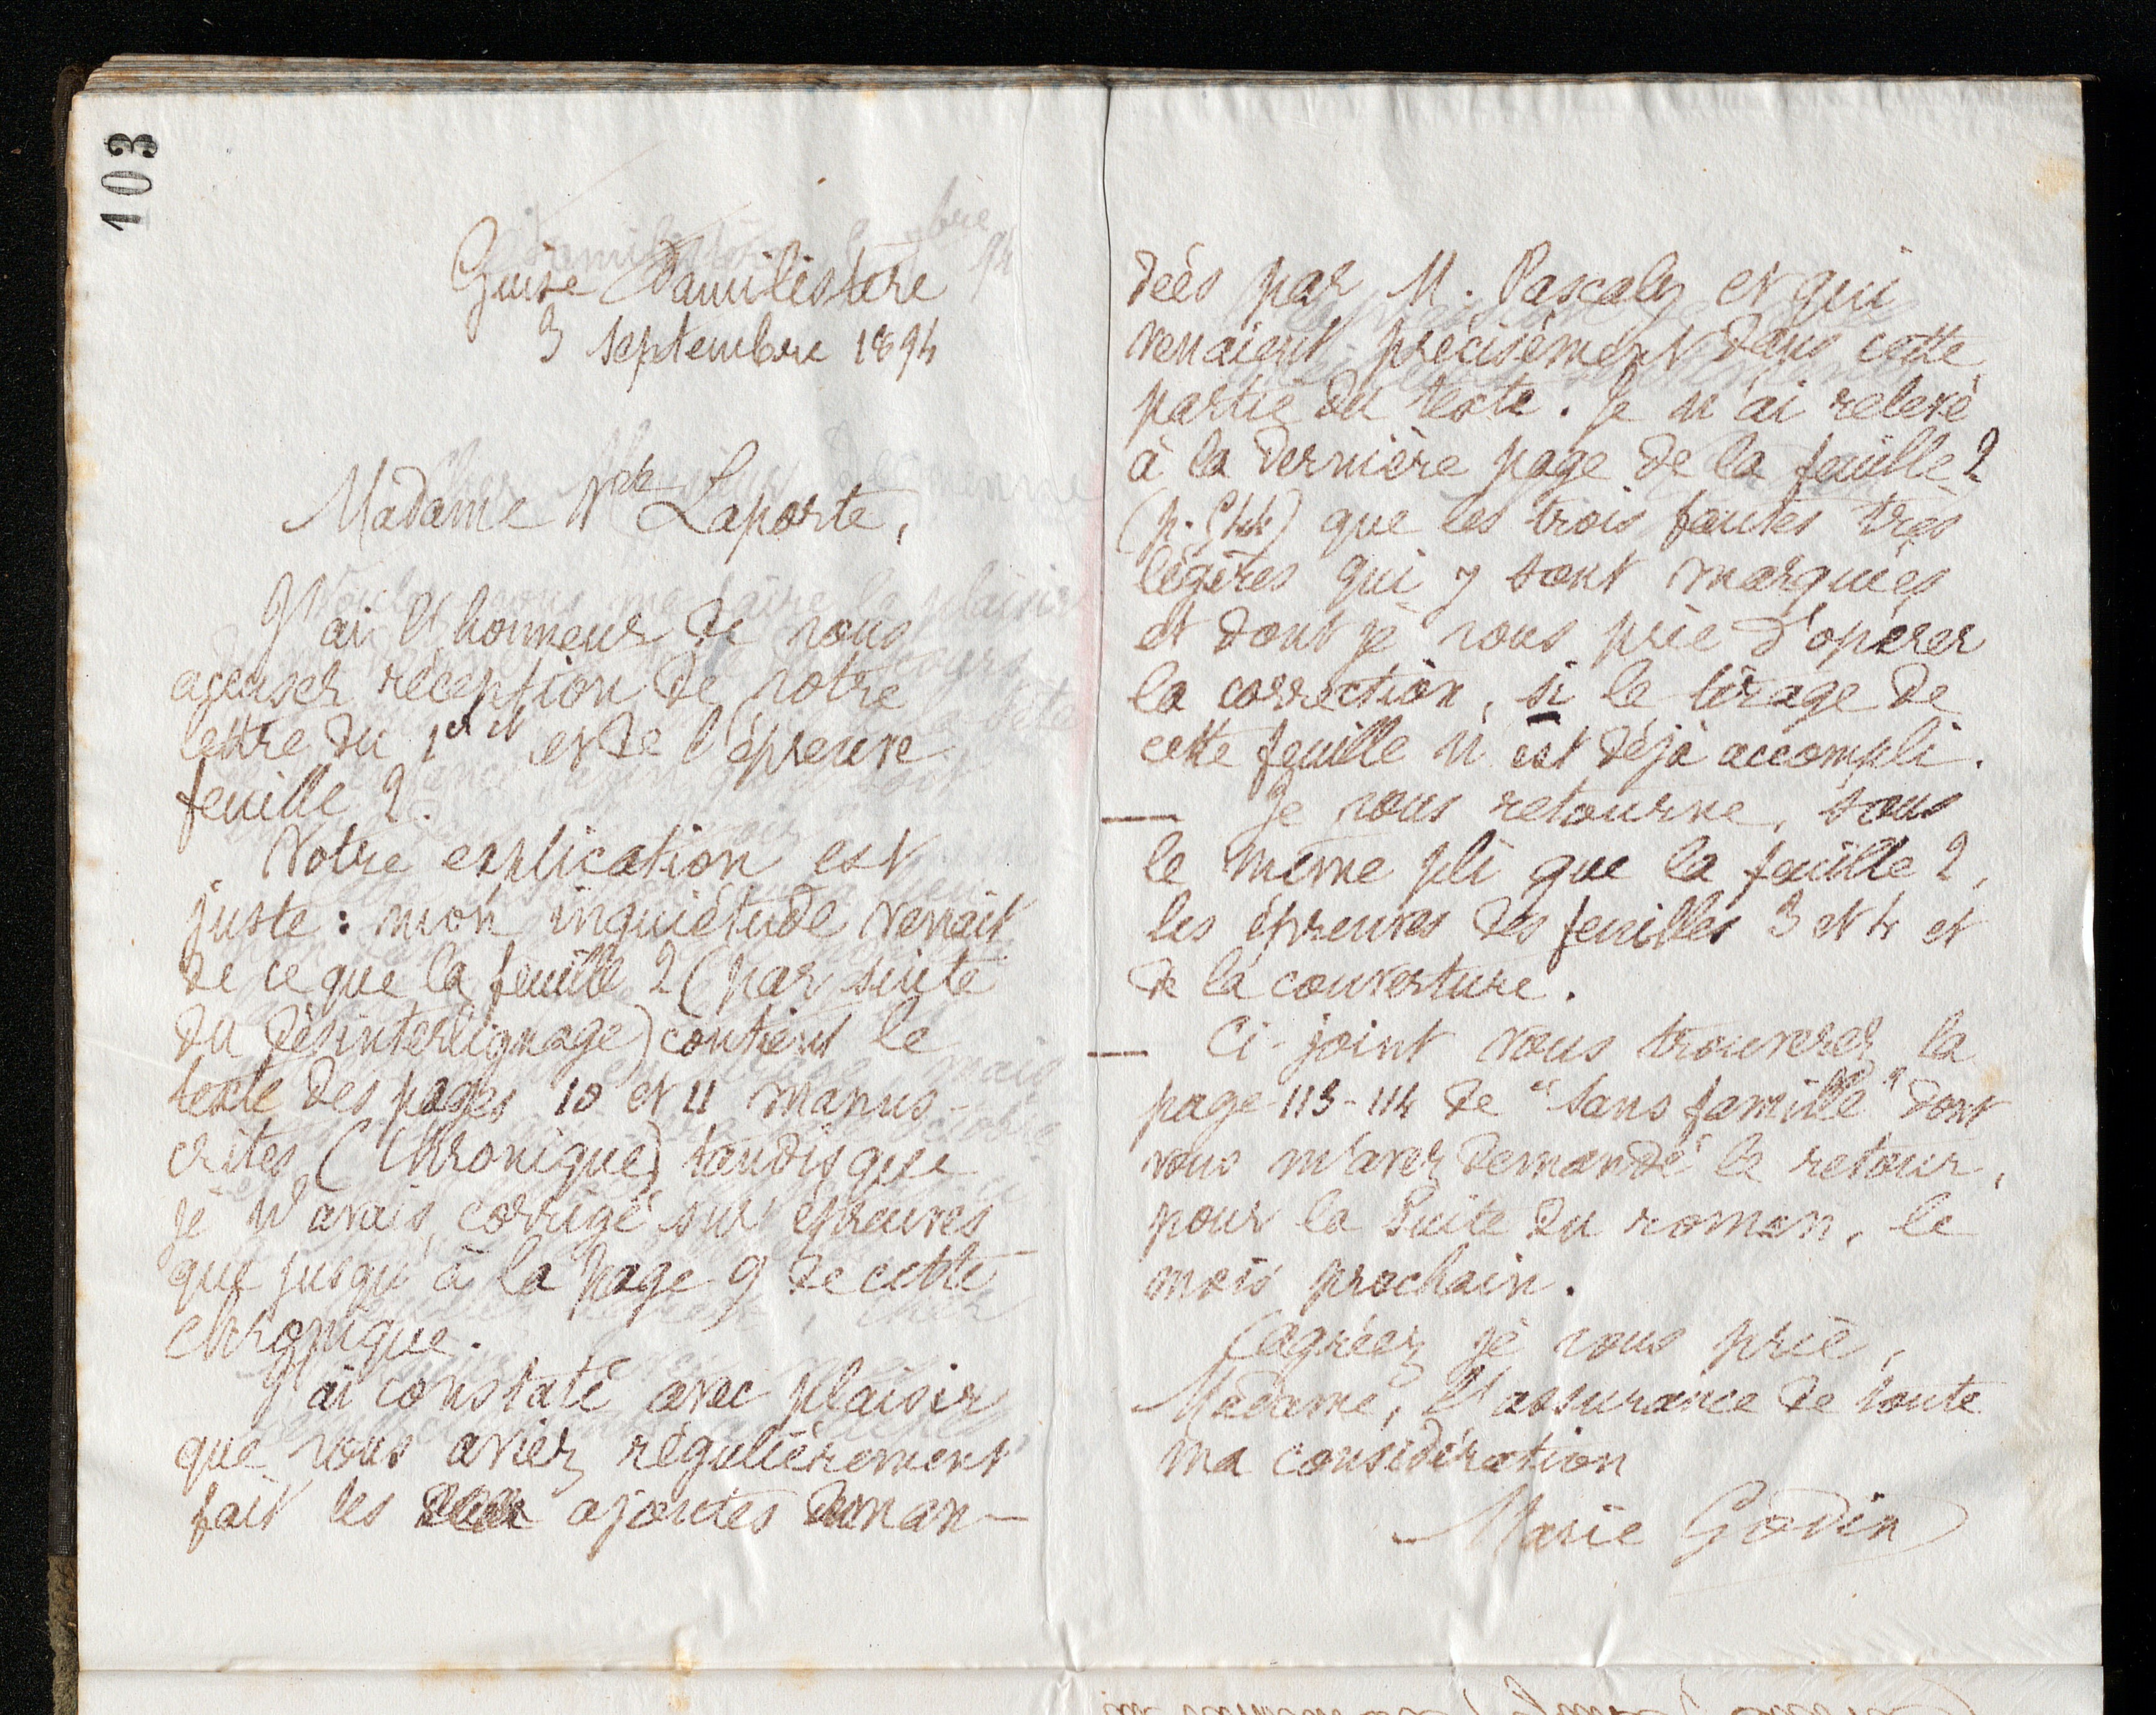 103
Guise Familistère
3 septembre 1894
Madame Vve Laporte,
J'ai l'honneur de vous
accuser réception de votre
lettre du 1er ct et de l'épreuve
feuille 2.
Votre explication est
juste : mon inquiétude venait
de ce que la feuille 2 (par suite
du désinterlignage) contient le
texte des pages 10 et 11 manus-
crites (Chronique) tandis que
je n'avais corrigé sur épreuves
que jusqu'à la page 9 de cette
chronique.
J'ai constaté avec plaisir
que vous aviez régulièrement
fait les ajoutes deman-
dées par M. Pascaly et qui
venaient précisément dans cette
partie du texte. Je n'ai relevé
à la dernière page de la feuille 2
(p. 544) que les trois fautes très
légères qui y sont marquées
et dont je vous prie d'opérer
la correction, si le tirage de
cette feuille n'est déjà accompli.
— Je vous retourne, sous
le même pli que la feuille 2,
les épreuves des feuilles 3 et 4 et
de la couverture.
— Ci-joint vous trouverez la
page 113-114 de "Sans famille" dont
vous m'avez demandé le retour,
pour la suite du roman, le
mois prochain.
Agréez je vous prie,
Madame, l'assurance de toute
ma considération
Marie Godin